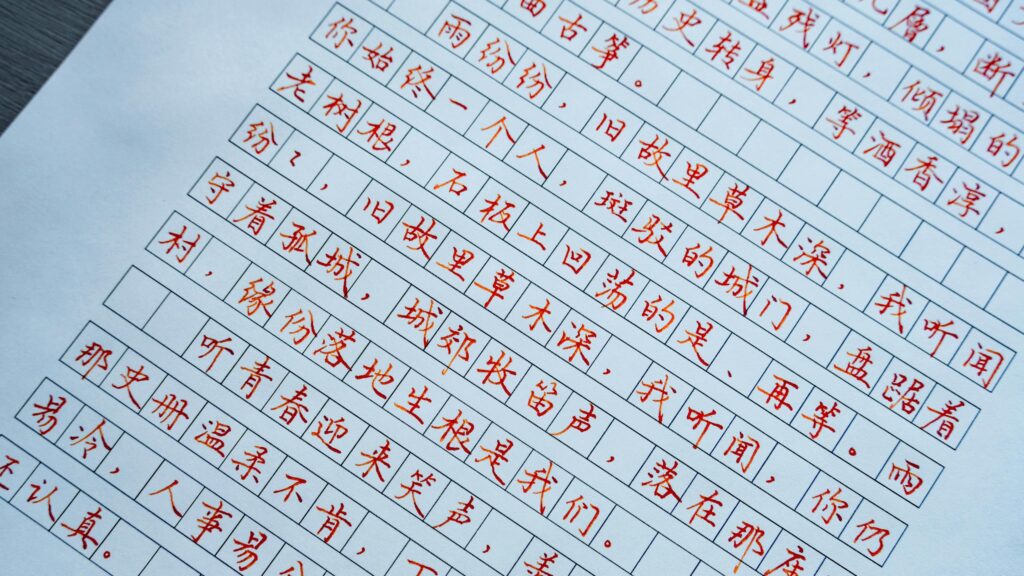 層，断
残灯，倾塌的
历史转身，等酒香淳，
留古筝。
雨纷纷，旧故里草木深，我听闻
你始终一个人，斑驳的城门，盘踞着
老树根，石板上回荡的是、再等。雨
纷〻，旧故里草木深，我听闻，你仍
守着孤城，城郊牧笛声，落在那座
村，缘份落地生根是我们。
听青春迎来笑声，
那史册温柔不肯，
易冷，人事易
认真。